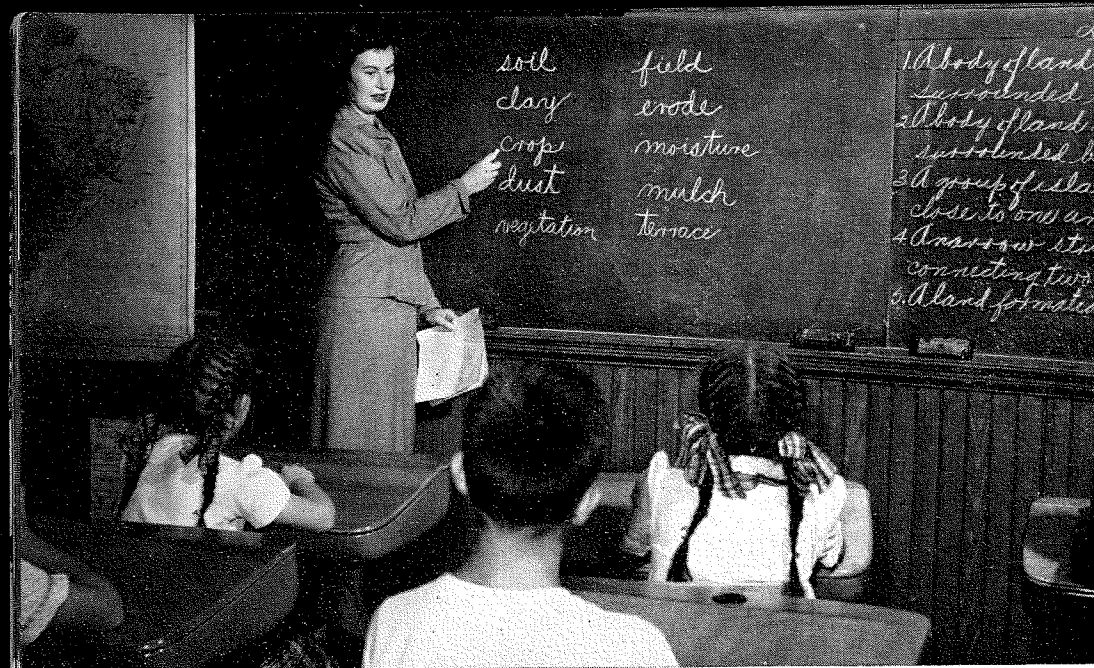 soil
clay
crop
dust
vegetation
field
erode
moisture
mulch
terrace
1. A body of land
surrounded
2. A body of land
surrounded
3. A group of
close to one
4. A narrow
connecting two
5. A land